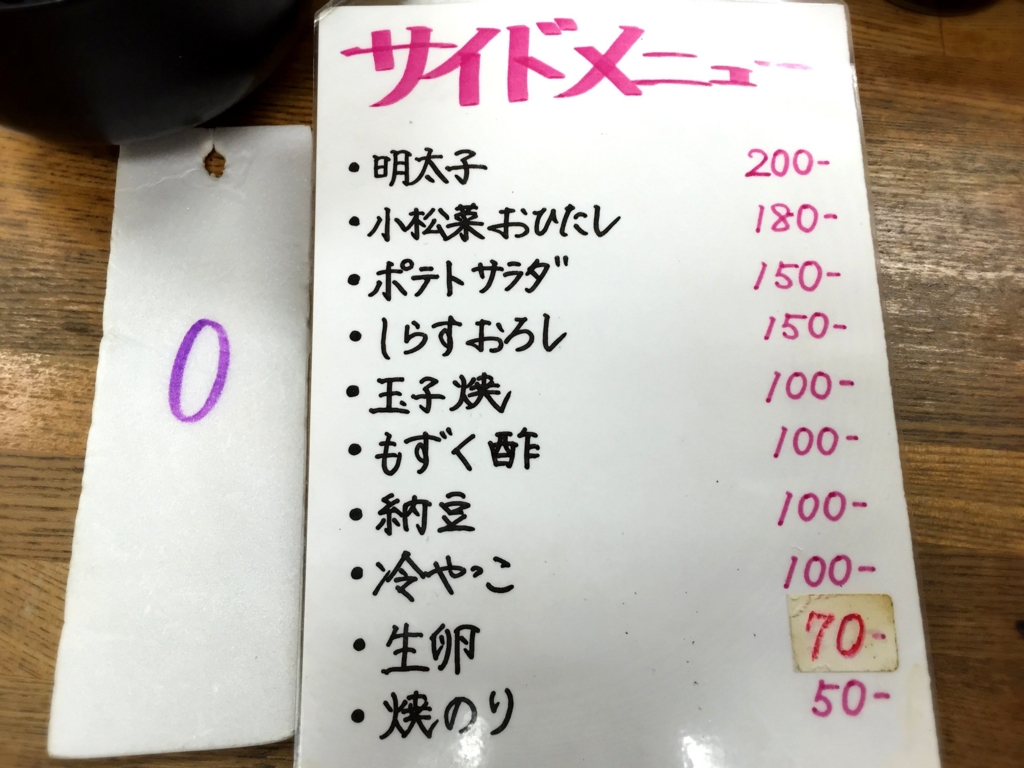 サイドメニュー
・明太子 200-
・小松菜おひたし 180-
・ポテトサラダ 150-
・しらすおろし 150-
・玉子焼 100-
・もずく酢 100-
・納豆 100-
・冷やっこ 100-
・生卵 70-
・焼のり 50-
0